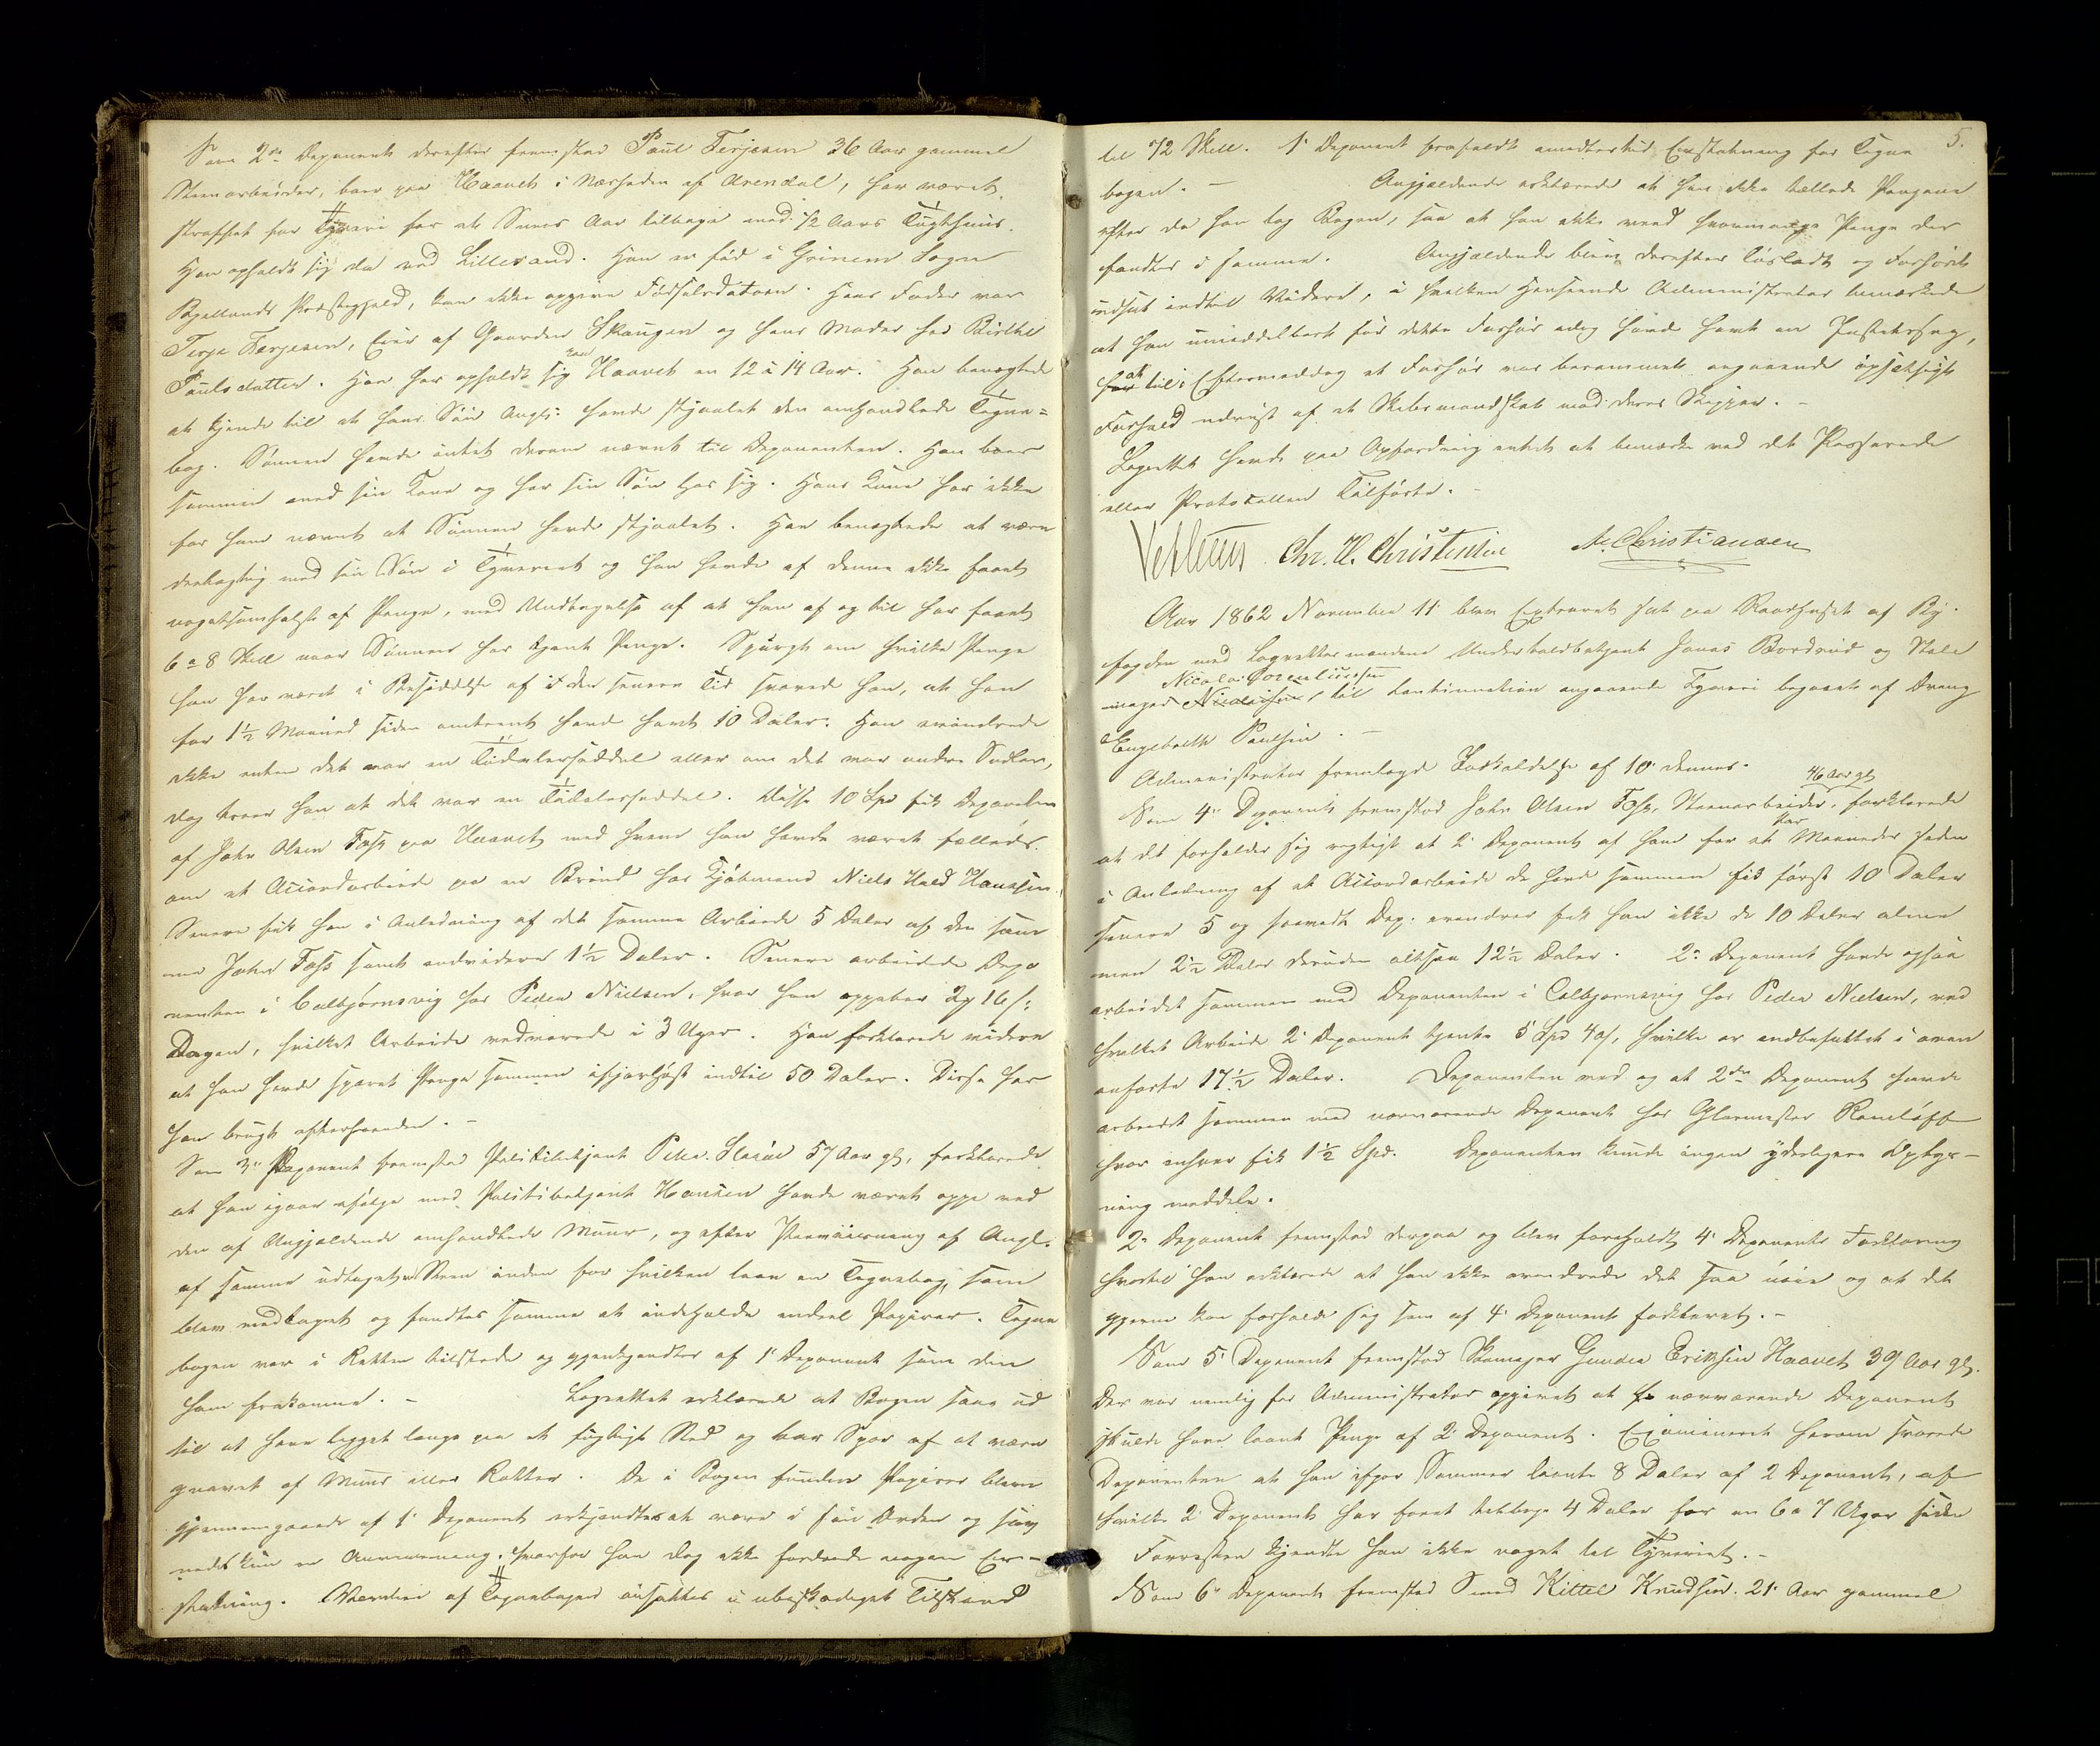 Som 2den Deponent derefter fremstod Paul Terjesen 36 Aar gammel
Steenarbeider, boer paa Haavet i Nærheden af Arendal, har været
straffet for Tyveri for et Snees Aar tilbage med 1/2 Aars Tugthuus.
Han opholdt sig da ved Lillesand. Han er fød i Grinem Sogn
Bjellands Præstegjeld, kan ikke opgive Fødselsdatoen. Hans Fader var
Terje Terjesen, Eier af Gaarden Skaugen og hans Moder hed Birthe
Paulsdatter. Han har opholdt sig paa Haavet en 12 a 14 Aar. Han benægtede
at kjende til at hans Søn Angl: havde stjaalet den omhandlede Tegne-
bog. Sønnen havde intet derom nævnt til Deponenten. Han boer
sammen med sin Kone og har sin Søn hos sig. Hans Kone har ikke
for ham nævnt at Sønnen havde stjaalet. Han benægtede at være
deelagtig med sin Søn i Tyveriet og han havde af denne ikke faaet
nogetsomhelst af Penge, med Undtagelse af at han af og til har faaet
6 a 8 Skill naar Sønnen har tjent Penge. Spurgt om hvilke Penge
han har været i Besiddelse af i den senere Tid svarede han, at han
for 1 1/2 Maaned siden omtrent havde havt 10 Daler. Han erindrede
ikke enten det var en Tidalerseddel eller om det var andre Sedler,
dog troer han at det var en Tidalerseddel. Disse 10 Spd fik Deponenten
af John Olsen Foss paa Haavet med hvem han havde været fælleds
om et Accordarbeide paa en Brønd hos Kjøbmand Niels Hald Hanssen.
Senere fik han i Anledning af det samme Arbeide 5 Daler af den sam
me John Foss samt endvidere 1 1/2 Daler. Senere arbeidede Depo
nenten i Colbjørnsvig hos Peder Nielsen, hvor han oppebar 2 16 s:
Dagen, hvilket Arbeide vedvarede i 3 Uger. Han forklarede videre
at han havde sparet Penge sammen ifjorhøst indtil 50 Daler. Disse har
han brugt efterhaanden. -
Som 3die Deponent fremstod Politibetjent Peder 57 Aar gl, forklarede
at han igaar ifølge med Politibetjent Hansen havde været oppe ved
den af Angjældende omhandlede Muur, og efter Paaviisning af Angl.
af samme udtaget en Steen inden for hvilken laae en Tegnebog, som
blev medtaget og fandtes samme at indeholde endeel Papirer. Tegne
bogen var i Retten tilstede og gjenkjendtes af 1ste Deponent som den
ham frakomne. - Lagrettet erklærede at Bogen saae ud
til at have ligget længe paa et fugtigt Sted og bar Spor af at være
gnavet af Muus eller Rotter. De i Bogen fundne Papirer bleve
gjennemgaaede af 1ste Deponent erkjendtes at være i sin Orden og sav
nedes kun en Anviisning, hvorfor han dog ikke fordrede nogen Er-
statning. Værdien af Tegnebogen ansattes i ubeskadiget Tilstand
5.
til 72 Skill. 1 Deponent frafaldt imidlertid Erstatning for Tegne
bogen. - Angjældende erklærede at han ikke tællede Pengene
efter da han tog Bogen, saa at han ikke veed hvormange Penge der
fandtes i samme. Angjældende blev derefter løsladt og Forhøret
udsat indtil Videre, i hvilken Henseende Administrator bemærkede
at han umiddelbart før dette Forhør idag havde havt en Justitssag,
at til Eftermiddag et Forhør var berammet angaaende opsetsigt
Forhold udviist af et Skibsmandskab mod deres Skipper. -
Lagrettet havde paa Opfordring intet at bemærke ved det Passerede
eller Protokollen Tilførte. -
Chr. H. Christensen M. Christiansen
Aar 1862 November 11 blev Extraret sat paa Raadhuset af By-
fogden med Lagrettesmændene Underholdbetjent Jonas Bordrud og Stole
mager Nicolai Corneliussen til Continuation angaaende Tyveri begaaet af Dreng
Engebreth Paulsen. -
Administrator fremlagde Indkaldelse af 10 dennes.
Som 4de Deponent fremstod John Olsen Foss, Steenarbeider, 46 Aar gl forklarede
at det forholder sig rigtigt at 2 Deponent af ham for et Par Maaneder siden
i Anledning af et Accordarbeide de havde sammen fik først 10 Daler
senere 5 og saavidt Dep. erindrer fik han ikke de 10 Daler alene
men 2 1/2 Daler desuden altsaa 12 1/2 Daler. 2 Deponent havde ogsaa
arbeidet sammen med Deponenten i Colbjørnsvig hos Peder Nielsen, ved
hvilket Arbeide 2 Deponent tjente 5 Spd 4, hvilke er indbefattet i oven
anførte 17 1/2 Daler. Deponenten ved og at 2den Deponent havde
arbeidet sammen med nærværende Deponent hos Glarmester Romløff
hvor enhver fik 1 1/2 Spd. Deponenten kunde ingen yderligere Oplys-
ning meddele.
2 Deponent fremstod derpaa og blev foreholdt 4 Deponents Forklaring
hvortil han erklærede at han ikke erindrede det saa nøie og at det
gjerne kan forholde sig som af 4 Deponent forklaret. -
Som 5 Deponent fremstod Skomager Gunder Eriksen Haavet 39 Aar gl.
Der var nemlig for Administrator opgivet at nærværende Deponent
skulde have laant Penge af 2 Deponent. Examineret herom svarede
Deponenten at han ifjor Sommer laante 8 Daler af 2 Deponent, af
hvilke 2 Deponent har faaet tilbage 4 Daler for en 6 a 7 Uger siden
Forresten kjendte han ikke noget til Tyveriet. -
Som 6 Deponent fremstod Smed Kittel Knudsen 21 Aar gammel